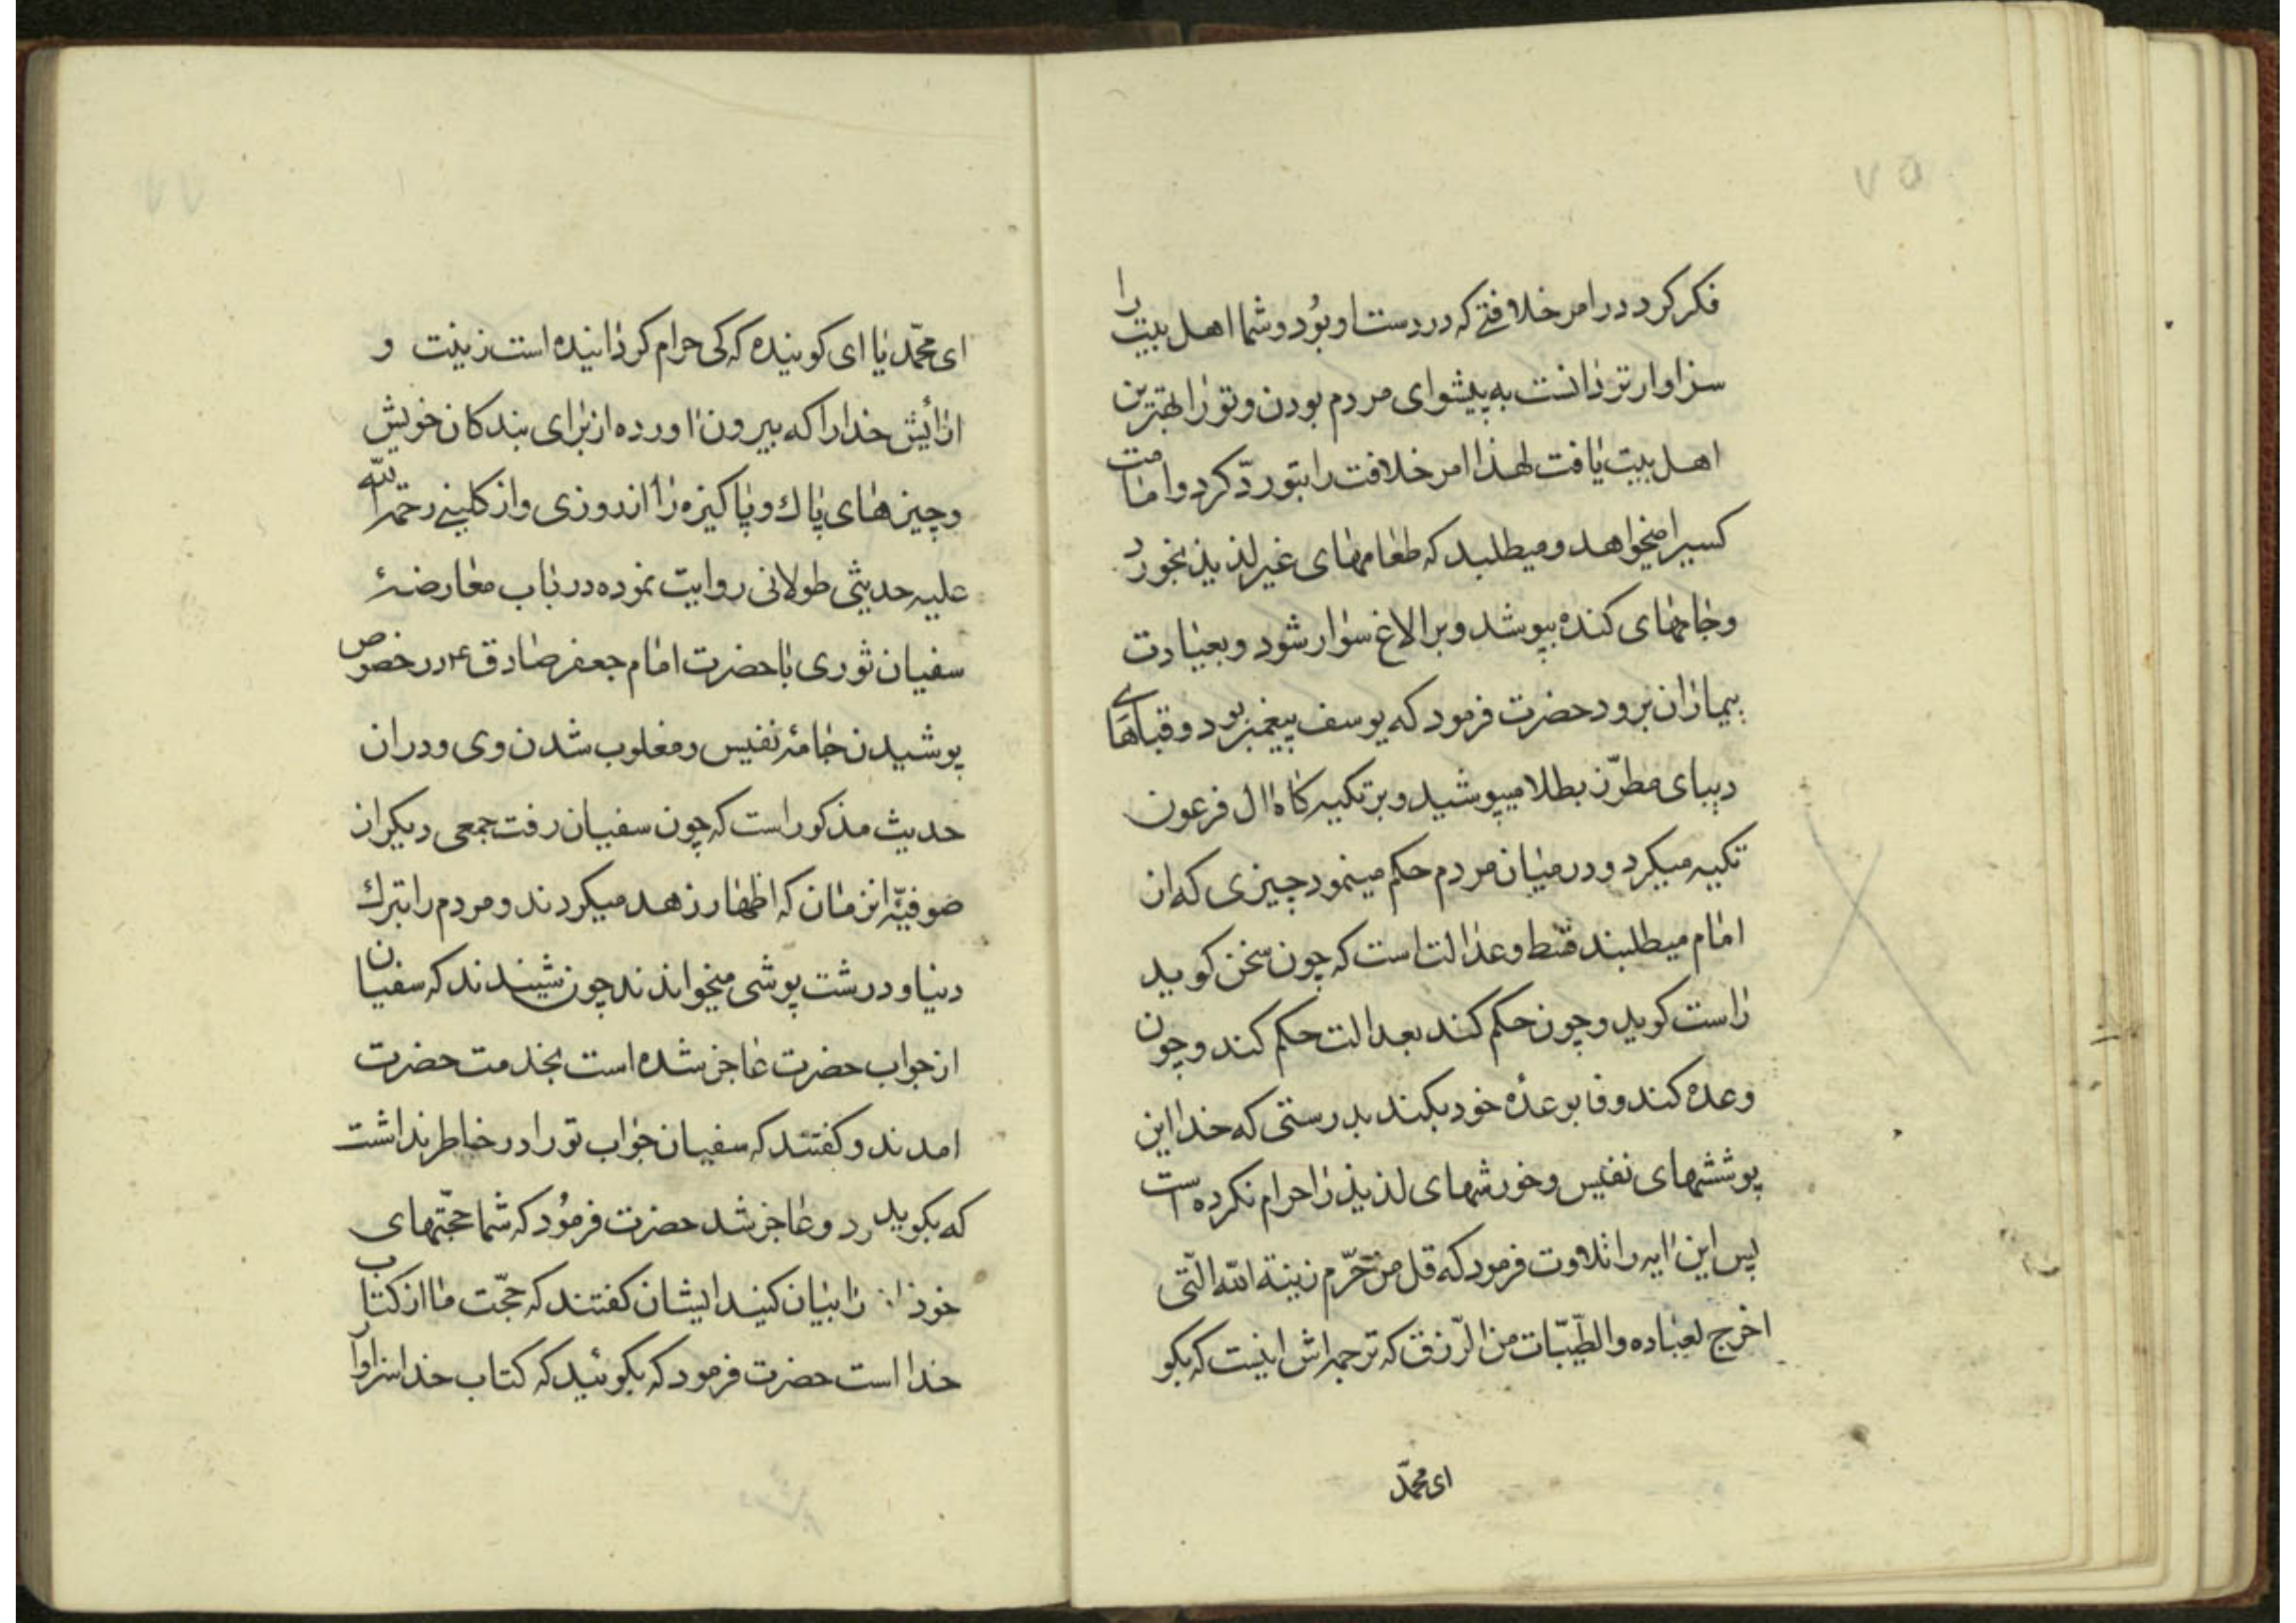 ۷۵
فکر کرد در امر خلافتی که در دست او بود و شما اهل بیت را
سزاوارتر دانست به پیشوای مردم بودن و تو را بهترین
اهل بیت یافت لهذا امر خلافت را بتو ردّ کرد و امامت
کسیرا میخواهد و میطلبد که طعامهای غیر لذیذ بخورد
و جامهای کنده بپوشد و بر الاغ سوار شود و بعیادت
بیماران برود حضرت فرمود که یوسف پیغمبر بود و قباهای
دیبای مطرّز بطلا میپوشید و بر تکیه کاه ال فرعون
تکیه میکرد و در میان مردم حکم مینمود چیزی که از
امام میطلبند قسط و عدالت است که چون سخن کوید
راست کوید و چون حکم کند بعدالت حکم کند و چون
وعده کند وفا بوعدهٔ خود بکند بدرستی که خدا این
پوششهای نفیس و خورشهای لذیذ را حرام نکرده است
پس این ایه را تلاوت فرمود که قل من حرّم زینة الله الّتی
اخرج لعباده والطّیّبات من الرّزق که ترجمه اش اینست که بکو
ای محمّد
ای محمّد یا ای کوینده که کی حرام کردانیده است زینت و
ارائیش خدا را که بیرون اورده از برای بندکان خویش
و چیزهای پاک و پاکیزه را از روزی و از کلینی رحمة الله
علیه حدیثی طولانی روایت نموده در باب معارضهٔ
سفیان ثوری با حضرت امام جعفر صادق ع در خصوص
پوشیدن جامهٔ نفیس و مغلوب شدن وی و در ان
حدیث مذکور است که چون سفیان رفت جمعی دیکر از
صوفیّه انزمان که اظهار زهد میکردند و مردم را بترک
دنیا و درشت پوشی میخواندند چون شنیدند که سفیان
از جواب حضرت عاجز شده است بخدمت حضرت
امدند و کفتند که سفیان جواب تو را در خاطر نداشت
که بکوید و عاجز شد حضرت فرمود که شما حجّتهای
خود را بیان کنید ایشان کفتند که حجّت ما از کتاب
خدا است حضرت فرمود که بکوئید که کتاب خدا سزاوار